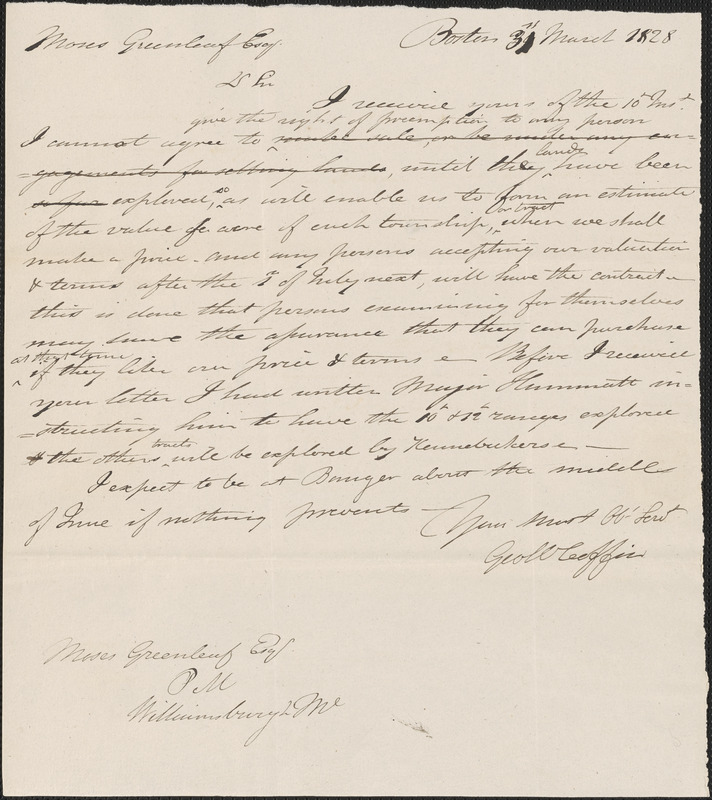 Moses Greenleaf Esq. Boston 31st March 1828
Dr Sir
I receive yours of the 10th Inst.
give the right of preemption to any person
I cannot agree to make sale, or be under any en-
=gagements for selling lands, until they lands have been
explored, so as will enable us to form an estimate
of the value of each township, or tract when we shall
make a price, and any persons accepting our valuation
& terms after the of July next, will have the contract
this is done that persons examining for themselves
may have the assurance that they can purchase
at that time
if they like our price & terms Before I receive
your letter I had written Major Hammatt in=
=structing him to have the 10th & 12th ranges explored
& the others tracts will be explored by Kennebeckers
I expect to be at Bangor about the middle
of June if nothing prevents Your Most Obt Servt
Geo W Coffin
Moses Greenleaf Esq
P M
Williamsburgh Me